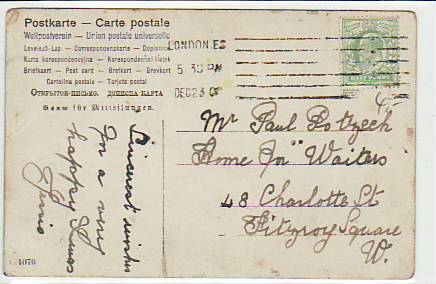 Postkarte — Carte postale
Weltpostverein — Union postale universelle
Levelező-Lap — Correspondenzkarte — Dopisnice
Karta korespondencyjna — Korespondenční lístek
Briefkart — Post card — Brefkort — Brevkort
Cartolina postale — Tarjeta postal
ОТКРЫТОЕ-ПИСЬМО. ДОПИСНА КАРТА
Raum für Mitteilungen.
LONDON. E.S
5 30 PM
DEC 23
Sincerest wishes
For a very
happy Xmas
Mr Paul
Home Inn" Waiters
48 Charlotte St
Fitzroy Square
W.
1076